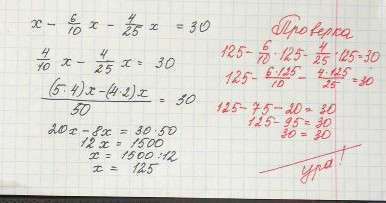 x - 6/10 x - 4/25 x = 30
4/10 x - 4/25 x = 30
(5·4)x-(4·2)x / 50 = 30
20x-8x = 30·50
12x = 1500
x = 1500:12
x = 125
Проверка
125- 6/10 ·125- 4/25 ·125=30
125- 6·125/10 - 4·125/25 =30
125-75-20=30
125-95=30
30=30
ура!